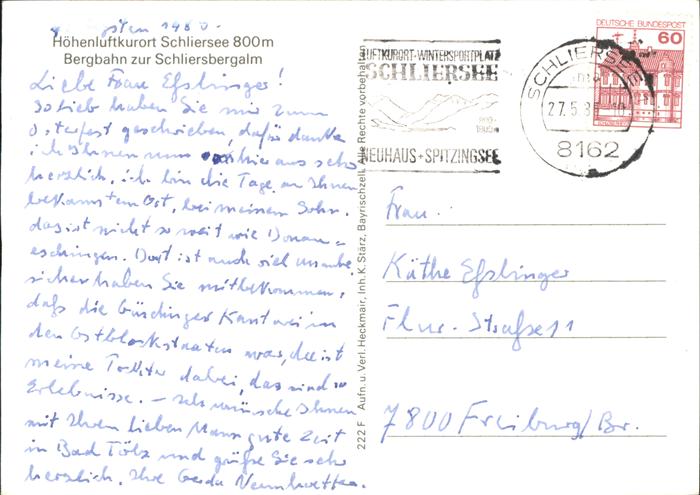 Pfingsten 1980.
Höhenluftkurort Schliersee 800m
Bergbahn zur Schliersbergalm
Liebe Frau Eßlinger!
So lieb haben Sie mir zum
Osterfest geschrieben, dafür danke
ich Ihnen nun hier aus sehr
herzlich. ich bin die Tage an Ihnen
bekanntem Ort, bei meinem Sohn.
das ist nicht so weit wie Donau=
eschingen. Dort ist auch viel Unruhe
sicher haben Sie mitbekommen,
daß die Kantorei in
den Ostblockstaaten war, da ist
meine Tochter dabei, das sind so
Erlebnisse. – Ich wünsche Ihnen
mit Ihrem lieben Mann gute Zeit
in Bad Tölz und grüße Sie sehr
herzlich. Ihre Gerda
222 F Aufn. u. Verl. Heckmair, Inh. K. Stärz, Bayrischzell. Alle Rechte vorbehalten
LUFTKURORT-WINTERSPORTPLATZ
SCHLIERSEE
NEUHAUS + SPITZINGSEE
SCHLIERSEE
27.5.8
8162
DEUTSCHE BUNDESPOST
60
Frau
Käthe Eßlinger
Flur-Straße 11
7800 Freiburg/Br.